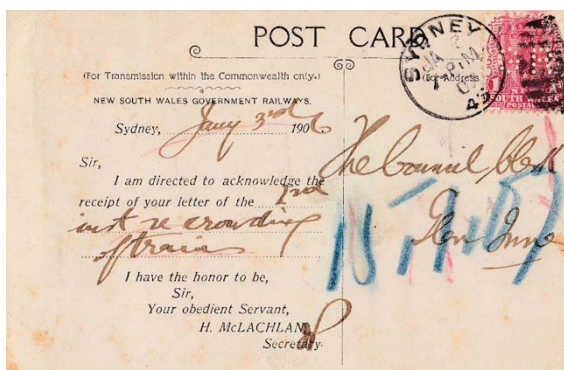 POST CARD.
(For Transmission within the Commonwealth only.)
(For Address
NEW SOUTH WALES GOVERNMENT RAILWAYS.
Sydney, Jany 3rd 1906
Sir,
I am directed to acknowledge the
receipt of your letter of the 2nd
inst re crowding
of trains
I have the honor to be,
Sir,
Your obedient Servant,
H. McLACHLAN,
Secretary.
The Council Clerk
Glen Innes
SYDNEY
JA 3
SOUTH WALES
POSTAGE